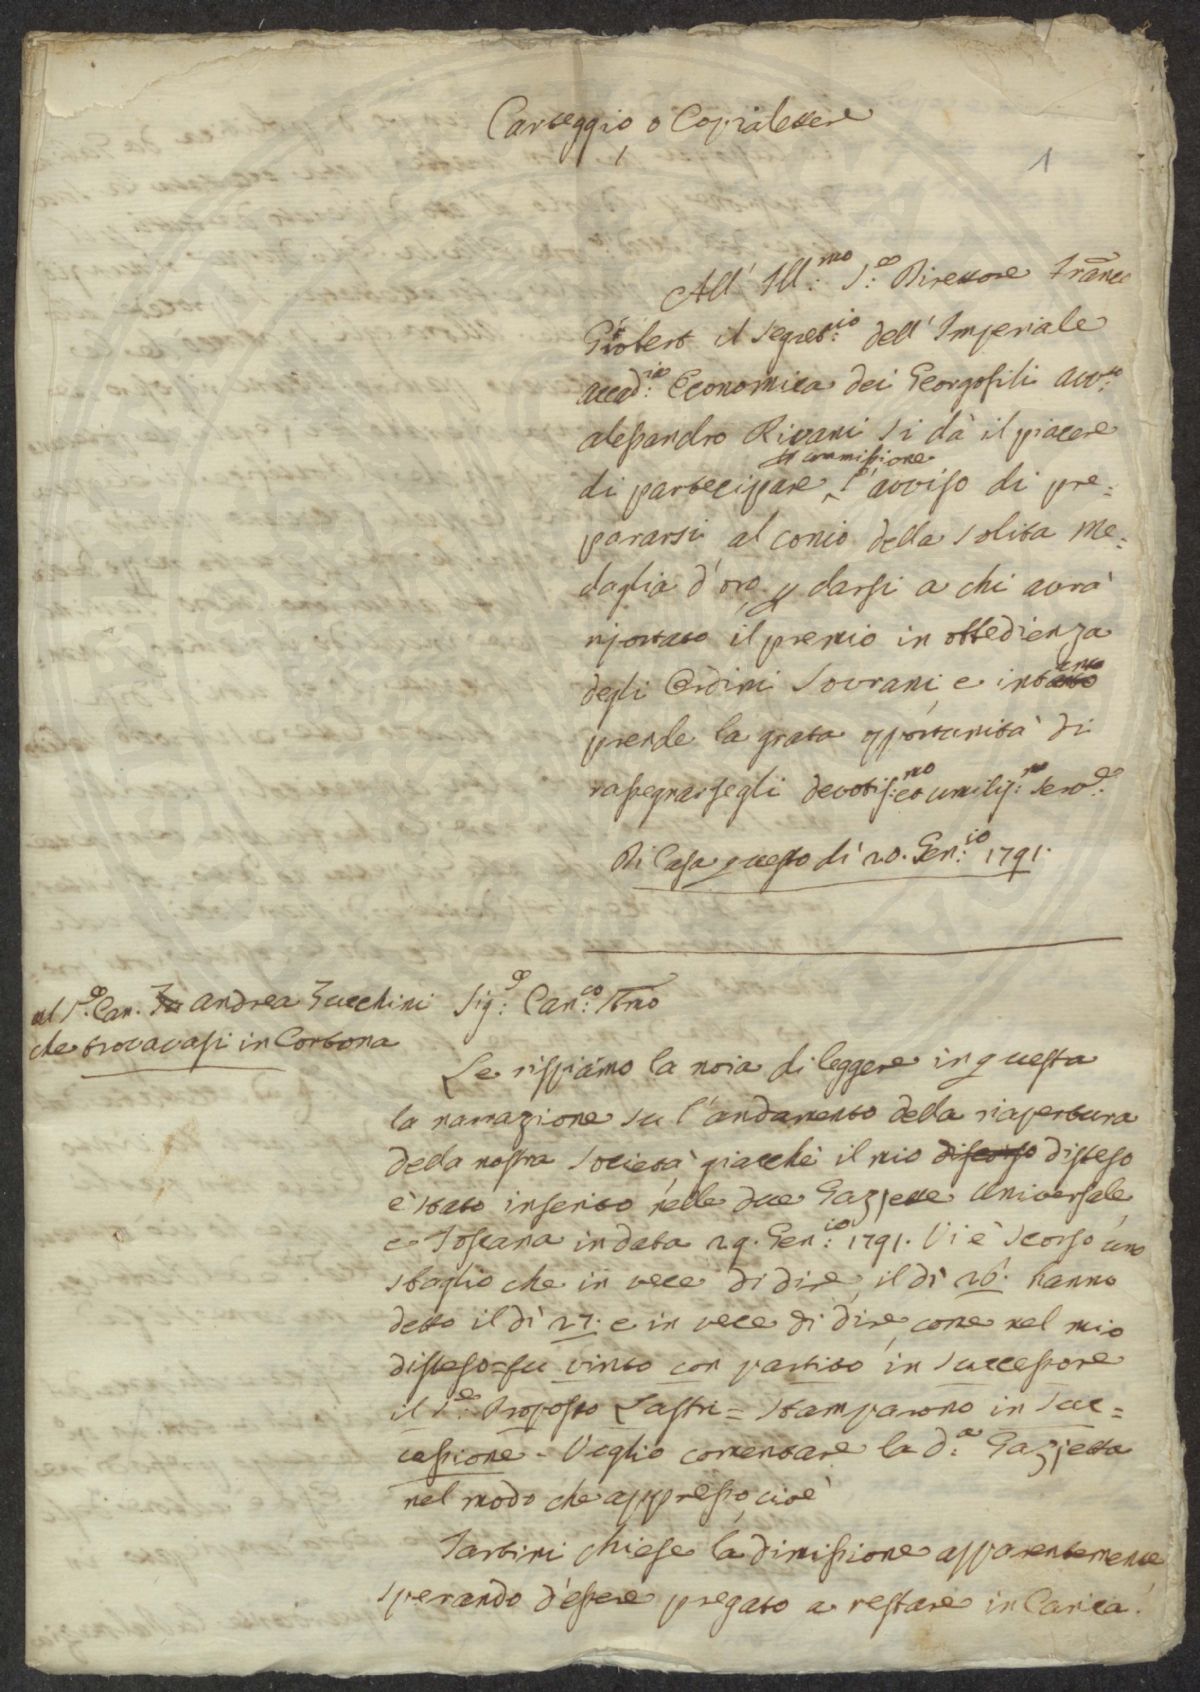 Carteggio, o Copialettere
1
All' Ill:mo S:e Direttore Franc
Giobert il Segret:io dell' Imperiale
Accad:ia Economica dei Georgofili Avv:to
Alessandro Rivani si dà il piacere
commissione
di partecipare l'avviso di pre=
pararsi al conio della solita me=
daglia d'oro p darsi a chi avrà
riportato il premio in obbedienza
degli Ordini Sovrani, e intanto
prende la grata opportunità di
rassegnarsegli devotis:mo ed umilis:mo Serv:e
Di Casa questo dì 20. Gen:io 1791.
al S:e Can. Andrea Zucchini
che trovavasi in Cortona
Sig:e Can:co Stmo
Le rispiamo la noia di leggere in questa
la narrazione su l'andamento della riapertura
della nostra Società, giacchè il mio discorso disteso
è stato inserito nelle due Gazzette Universale,
e Toscana in data 29. Gen:io 1791. Vi è scorso uno
sbaglio che in vece di dire, il dì 26. hanno
detto il dì 27. e in vece di dire, come nel mio
disteso=fu vinto con partito in Successore
il S:e Proposto Lastri = stamparono in Suc=
cessione - Voglio comentare la d:a Gazzetta
nel modo che appresso, cioè
Tartini chiese la dimissione apparentemente
sperando d'essere pregato a restare in Carica.